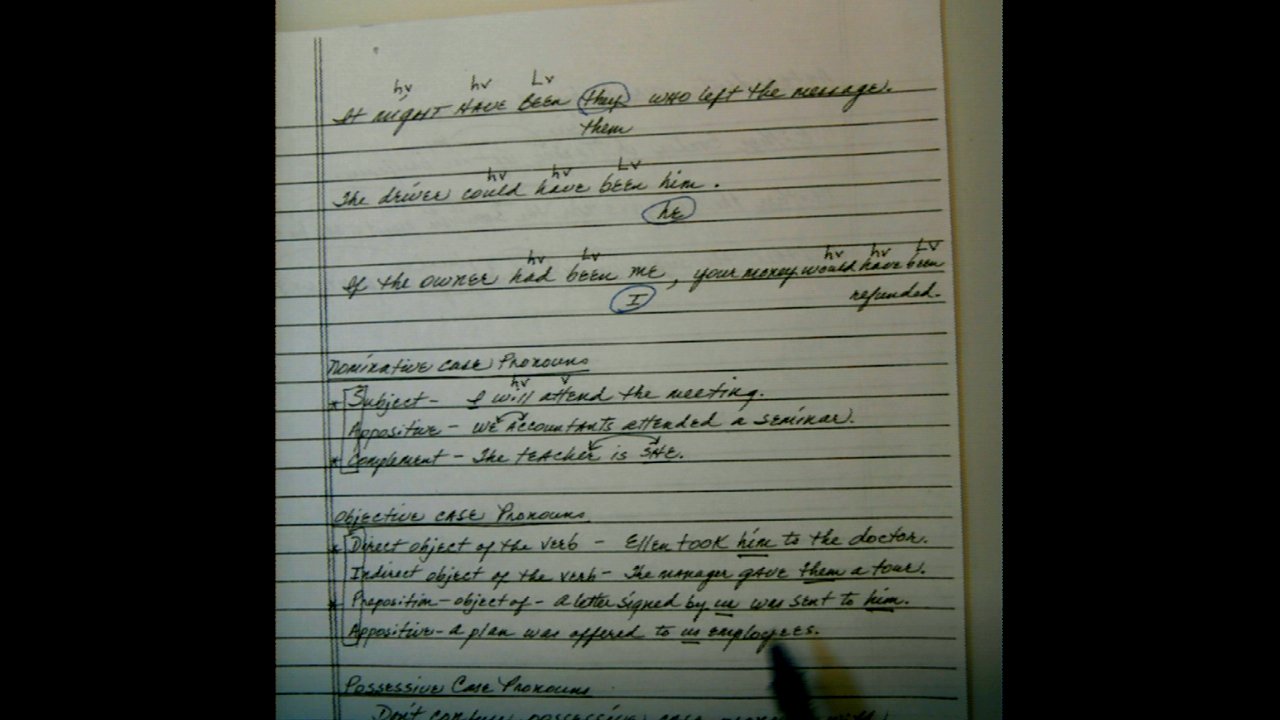 hv hv Lv
It might HAVE BEEN they who left the message.
them
hv hv Lv
The driver could have been him.
he
hv Lv hv hv LV
If the owner had been me, your money would have been
I
refunded.
Nominative case Pronouns
hv v
* Subject - I will attend the meeting.
Appositive - WE Accountants attended a seminar.
* Complement - The teacher is SHE.
Objective case Pronouns
* Direct object of the verb - Ellen took him to the doctor.
Indirect object of the verb - The manager gave them a tour.
* Preposition - object of - a letter signed by us was sent to him.
Appositive - a plan was offered to us employees.
Possessive Case Pronouns
Don't confuse possessive case